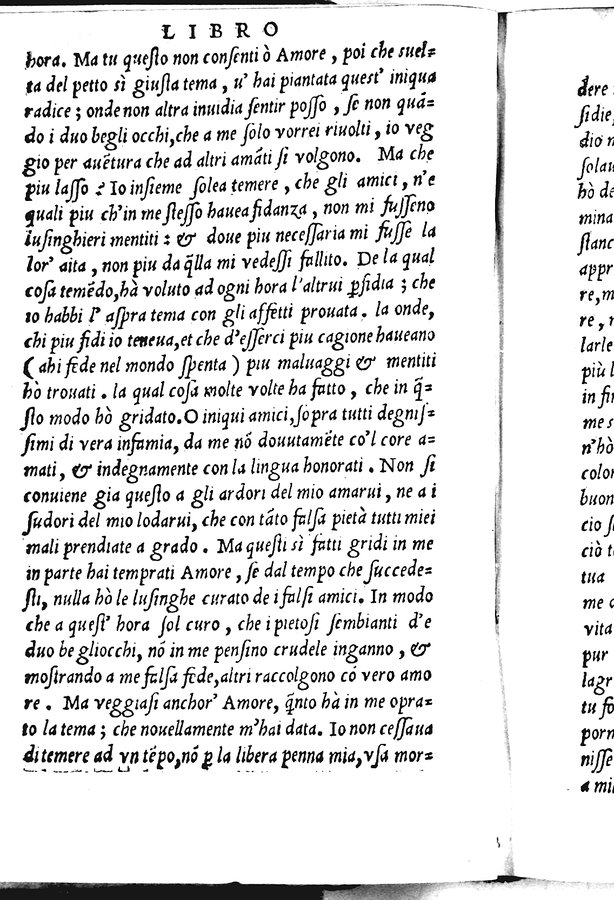 LIBRO
hora. Ma tu queſto non conſenti ò Amore, poi che ſuel-
ta del petto sì giuſta tema, u' hai piantata queſt' iniqua
radice; onde non altra inuidia ſentir poſſo, ſe non quã-
do i duo begli occhi, che a me ſolo vorrei riuolti, io veg
gio per auẽtura che ad altri amãti ſi volgono. Ma che
piu laſſo? Io inſieme ſolea temere, che gli amici, n'e
quali piu ch'in me ſteſſo hauea fidanza, non mi fuſſeno
luſinghieri mentiti: & doue piu neceſſaria mi fuſſe la
lor' aita, non piu da q̃lla mi vedeſſi fallito. De la qual
coſa temẽdo, hà voluto ad ogni hora l'altrui ꝑfidia; che
io habbi l' aſpra tema con gli affetti prouata. la onde,
chi piu fidi io teneua, et che d'eſſerci piu cagione haueano
(ahi fede nel mondo ſpenta) piu maluaggi & mentiti
hò trouati. la qual coſa molte volte ha fatto, che in q̃-
ſto modo hò gridato. O iniqui amici, ſopra tutti degniſ-
ſimi di vera infamia, da me nõ douutamẽte co'l core a-
mati, & indegnamente con la lingua honorati. Non ſi
conuiene gia queſto a gli ardori del mio amarui, ne a i
ſudori del mio lodarui, che con tãto falſa pietà tutti miei
mali prendiate a grado. Ma queſti sì fatti gridi in me
in parte hai temprati Amore, ſe dal tempo che ſuccede-
ſti, nulla hò le luſinghe curato de i falſi amici. In modo
che a queſt' hora ſol curo, che i pietoſi ſembianti d'e
duo be gliocchi, nõ in me penſino crudele inganno, &
moſtrando a me falſa fede, altri raccolgono cõ vero amo
re. Ma veggiaſi anchor' Amore, q̃nto hà in me opra-
to la tema; che nouellamente m'hai data. Io non ceſſaua
di temere ad vn tẽpo, nõ ꝑ la libera penna mia, vſa mor-
dere
ſidie,
dio n
ſolau
hò de
mina
ſtanc
appr
re, m
re,
larle
più l
in fi
me s
n'hò
color
buon
cio ſ
ciò t
tua
me a
vita
pur
lagr
tu fo
porn
niſſe
a mil